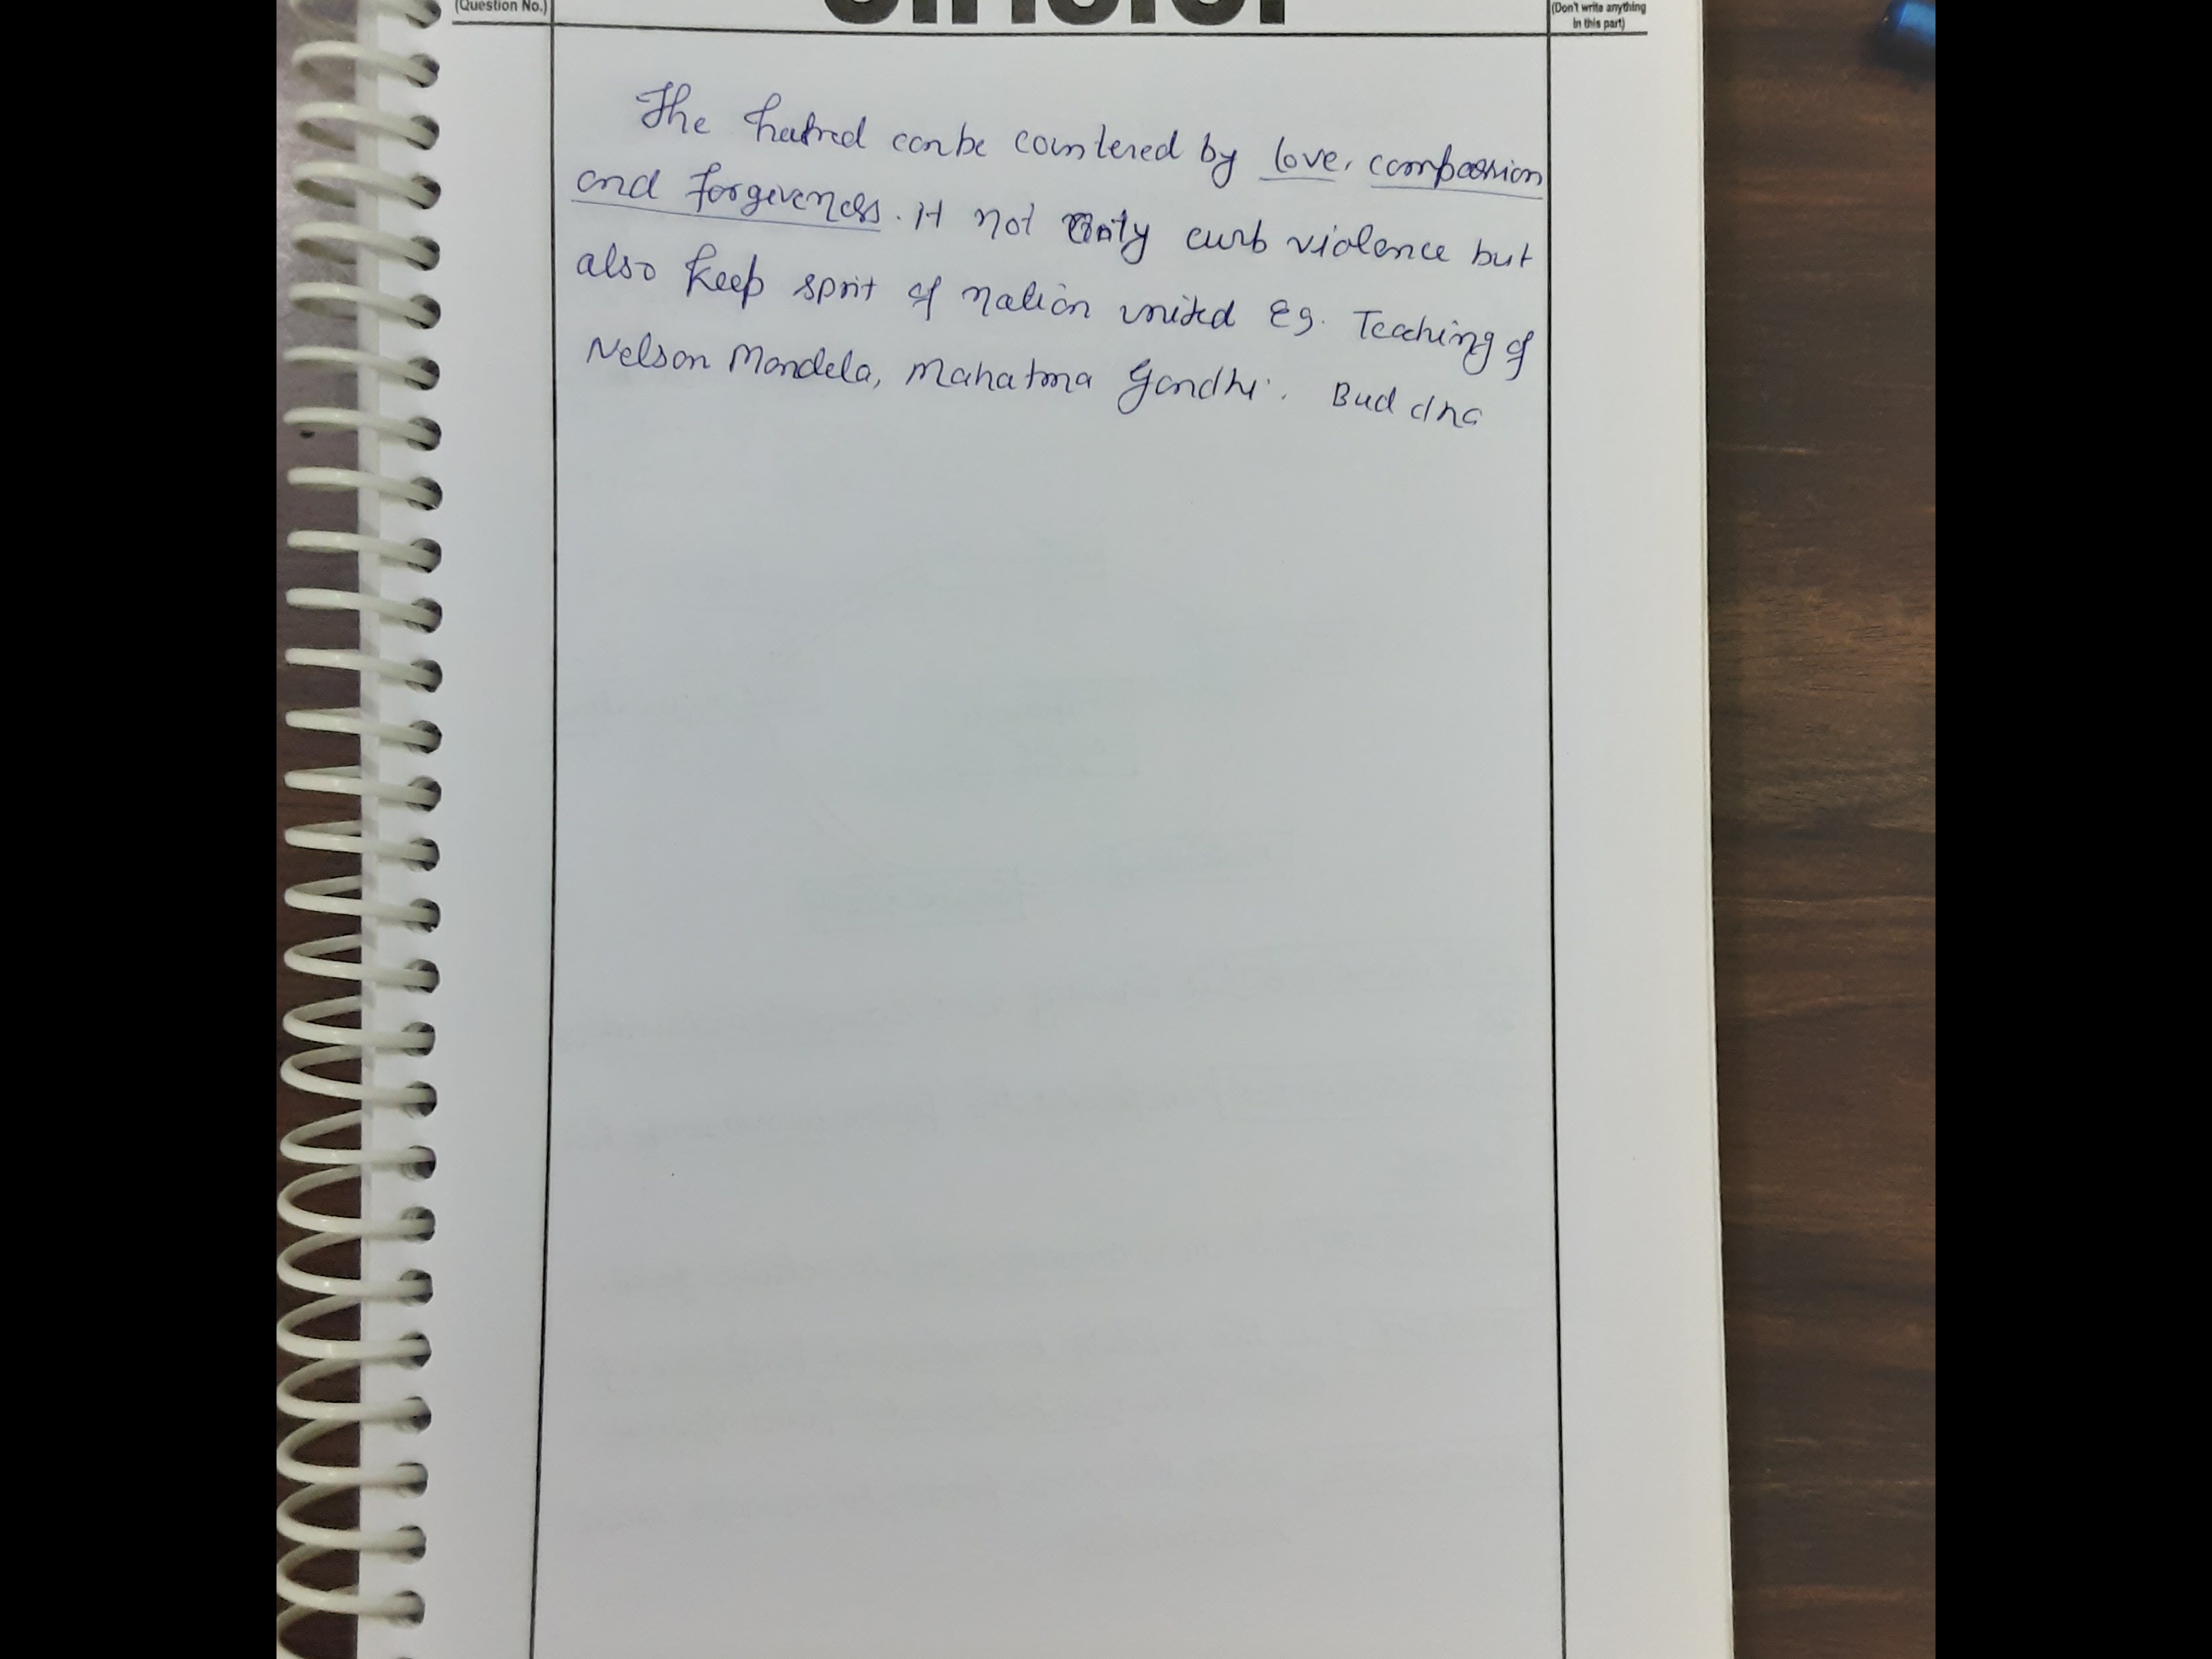 (Question No.)
(Don't write anything
in this part)
The hatred can be countered by love, compassion
and forgiveness. It not only curb violence but
also keep sprit of nation united Eg. Teaching of
Nelson Mandela, Mahatma Gandhi, Buddha